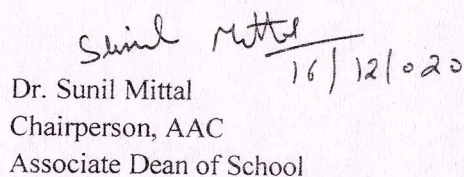 Sunil Mittal
16/12/020
Dr. Sunil Mittal
Chairperson, AAC
Associate Dean of School